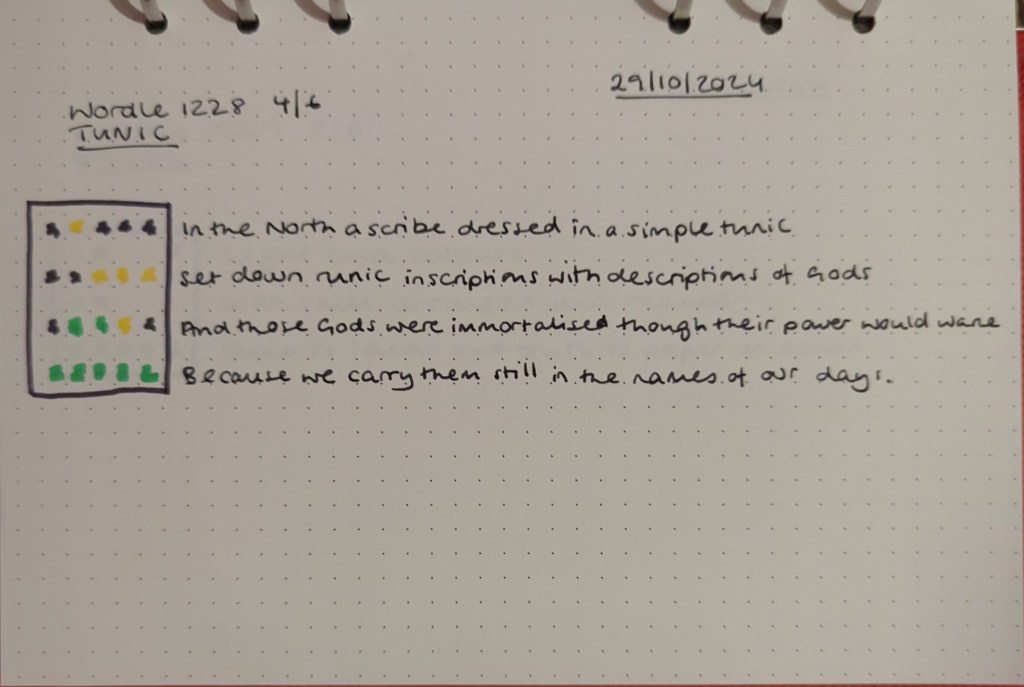 29/10/2024
Wordle 1228 4/6
TUNIC
In the North a scribe dressed in a simple tunic
set down runic inscriptions with descriptions of Gods
And those Gods were immortalised though their power would wane
Because we carry them still in the names of our days.